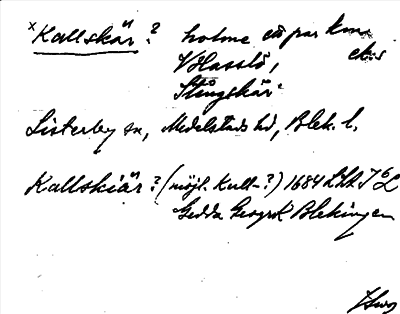 x Kallskär? holme ett par km
V Hasslö, ek.s
Slingskär
Listerby sn, Medelstads hd, Blek. l.
Kallskiär? (möjl. Kull-?) 1684 LLA I 6 L
Gedda Geogr K Blekingen